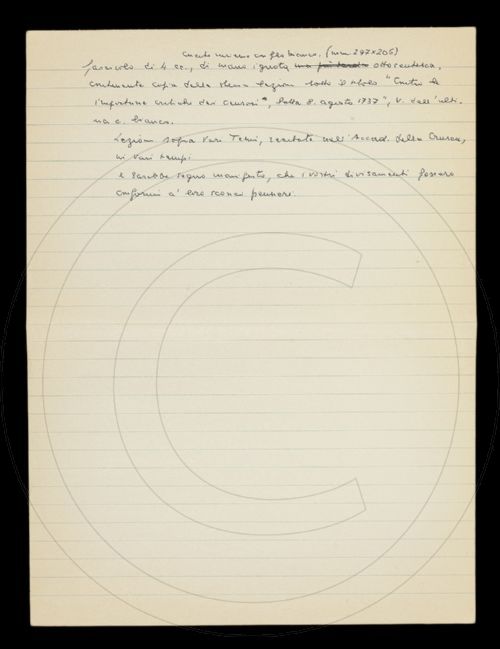 cucito invano un filo bianco. (mm 297x205)
fascicolo di 4 cc., di mano ignota ottocentesca,
contenente copia della stessa lezione sotto il titolo "Contro le
importune critiche dei censori", letta 8 agosto 1737", V. dell'ulti-
ma c. bianco.
Lezioni sopra Vari Temi, recitate nell'Accad. della Crusca,
in vari tempi.
e sarebbe segno manifesto, che i vostri divisamenti fossero
conformi a' loro pensieri.